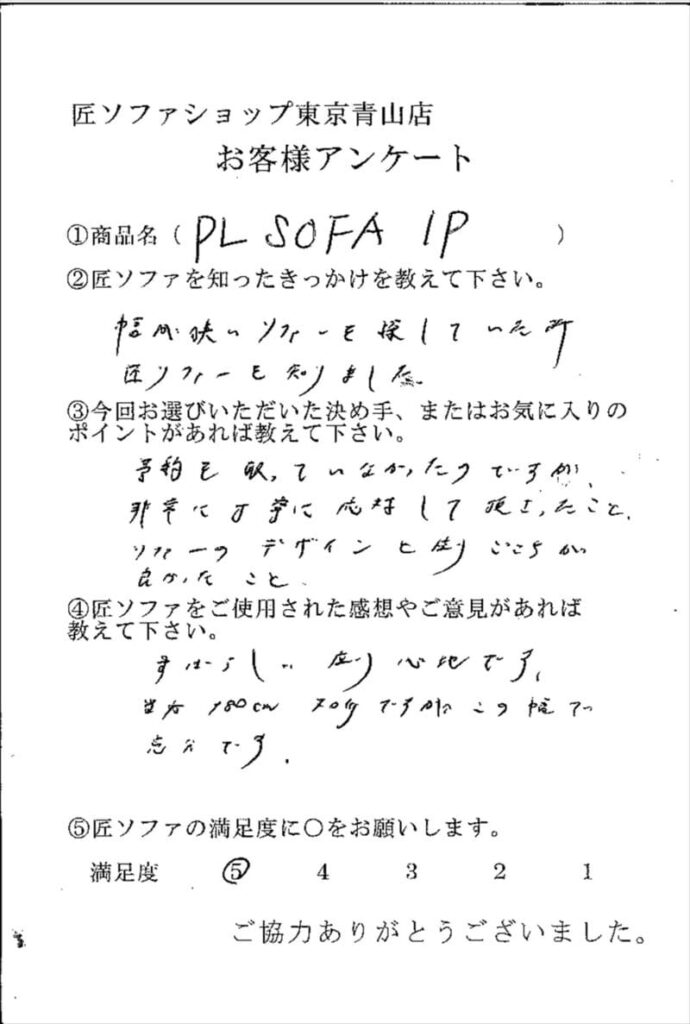 匠ソファショップ東京青山店
お客様アンケート
①商品名（ PL SOFA 1P ）
②匠ソファを知ったきっかけを教えて下さい。
幅が狭いソファーを探していた所
匠ソファーを知りました。
③今回お選びいただいた決め手、またはお気に入りの
ポイントがあれば教えて下さい。
予約を取っていなかったのですが、
非常に丁寧に応対して頂きったこと、
ソファーのデザインと座りごこちが
良かったこと、
④匠ソファをご使用された感想やご意見があれば
教えて下さい。
すばらしい座り心地です、
当方180cm 70kgですがこの幅で
充分です.
⑤匠ソファの満足度に○をお願いします。
満足度 ⑤ 4 3 2 1
ご協力ありがとうございました。